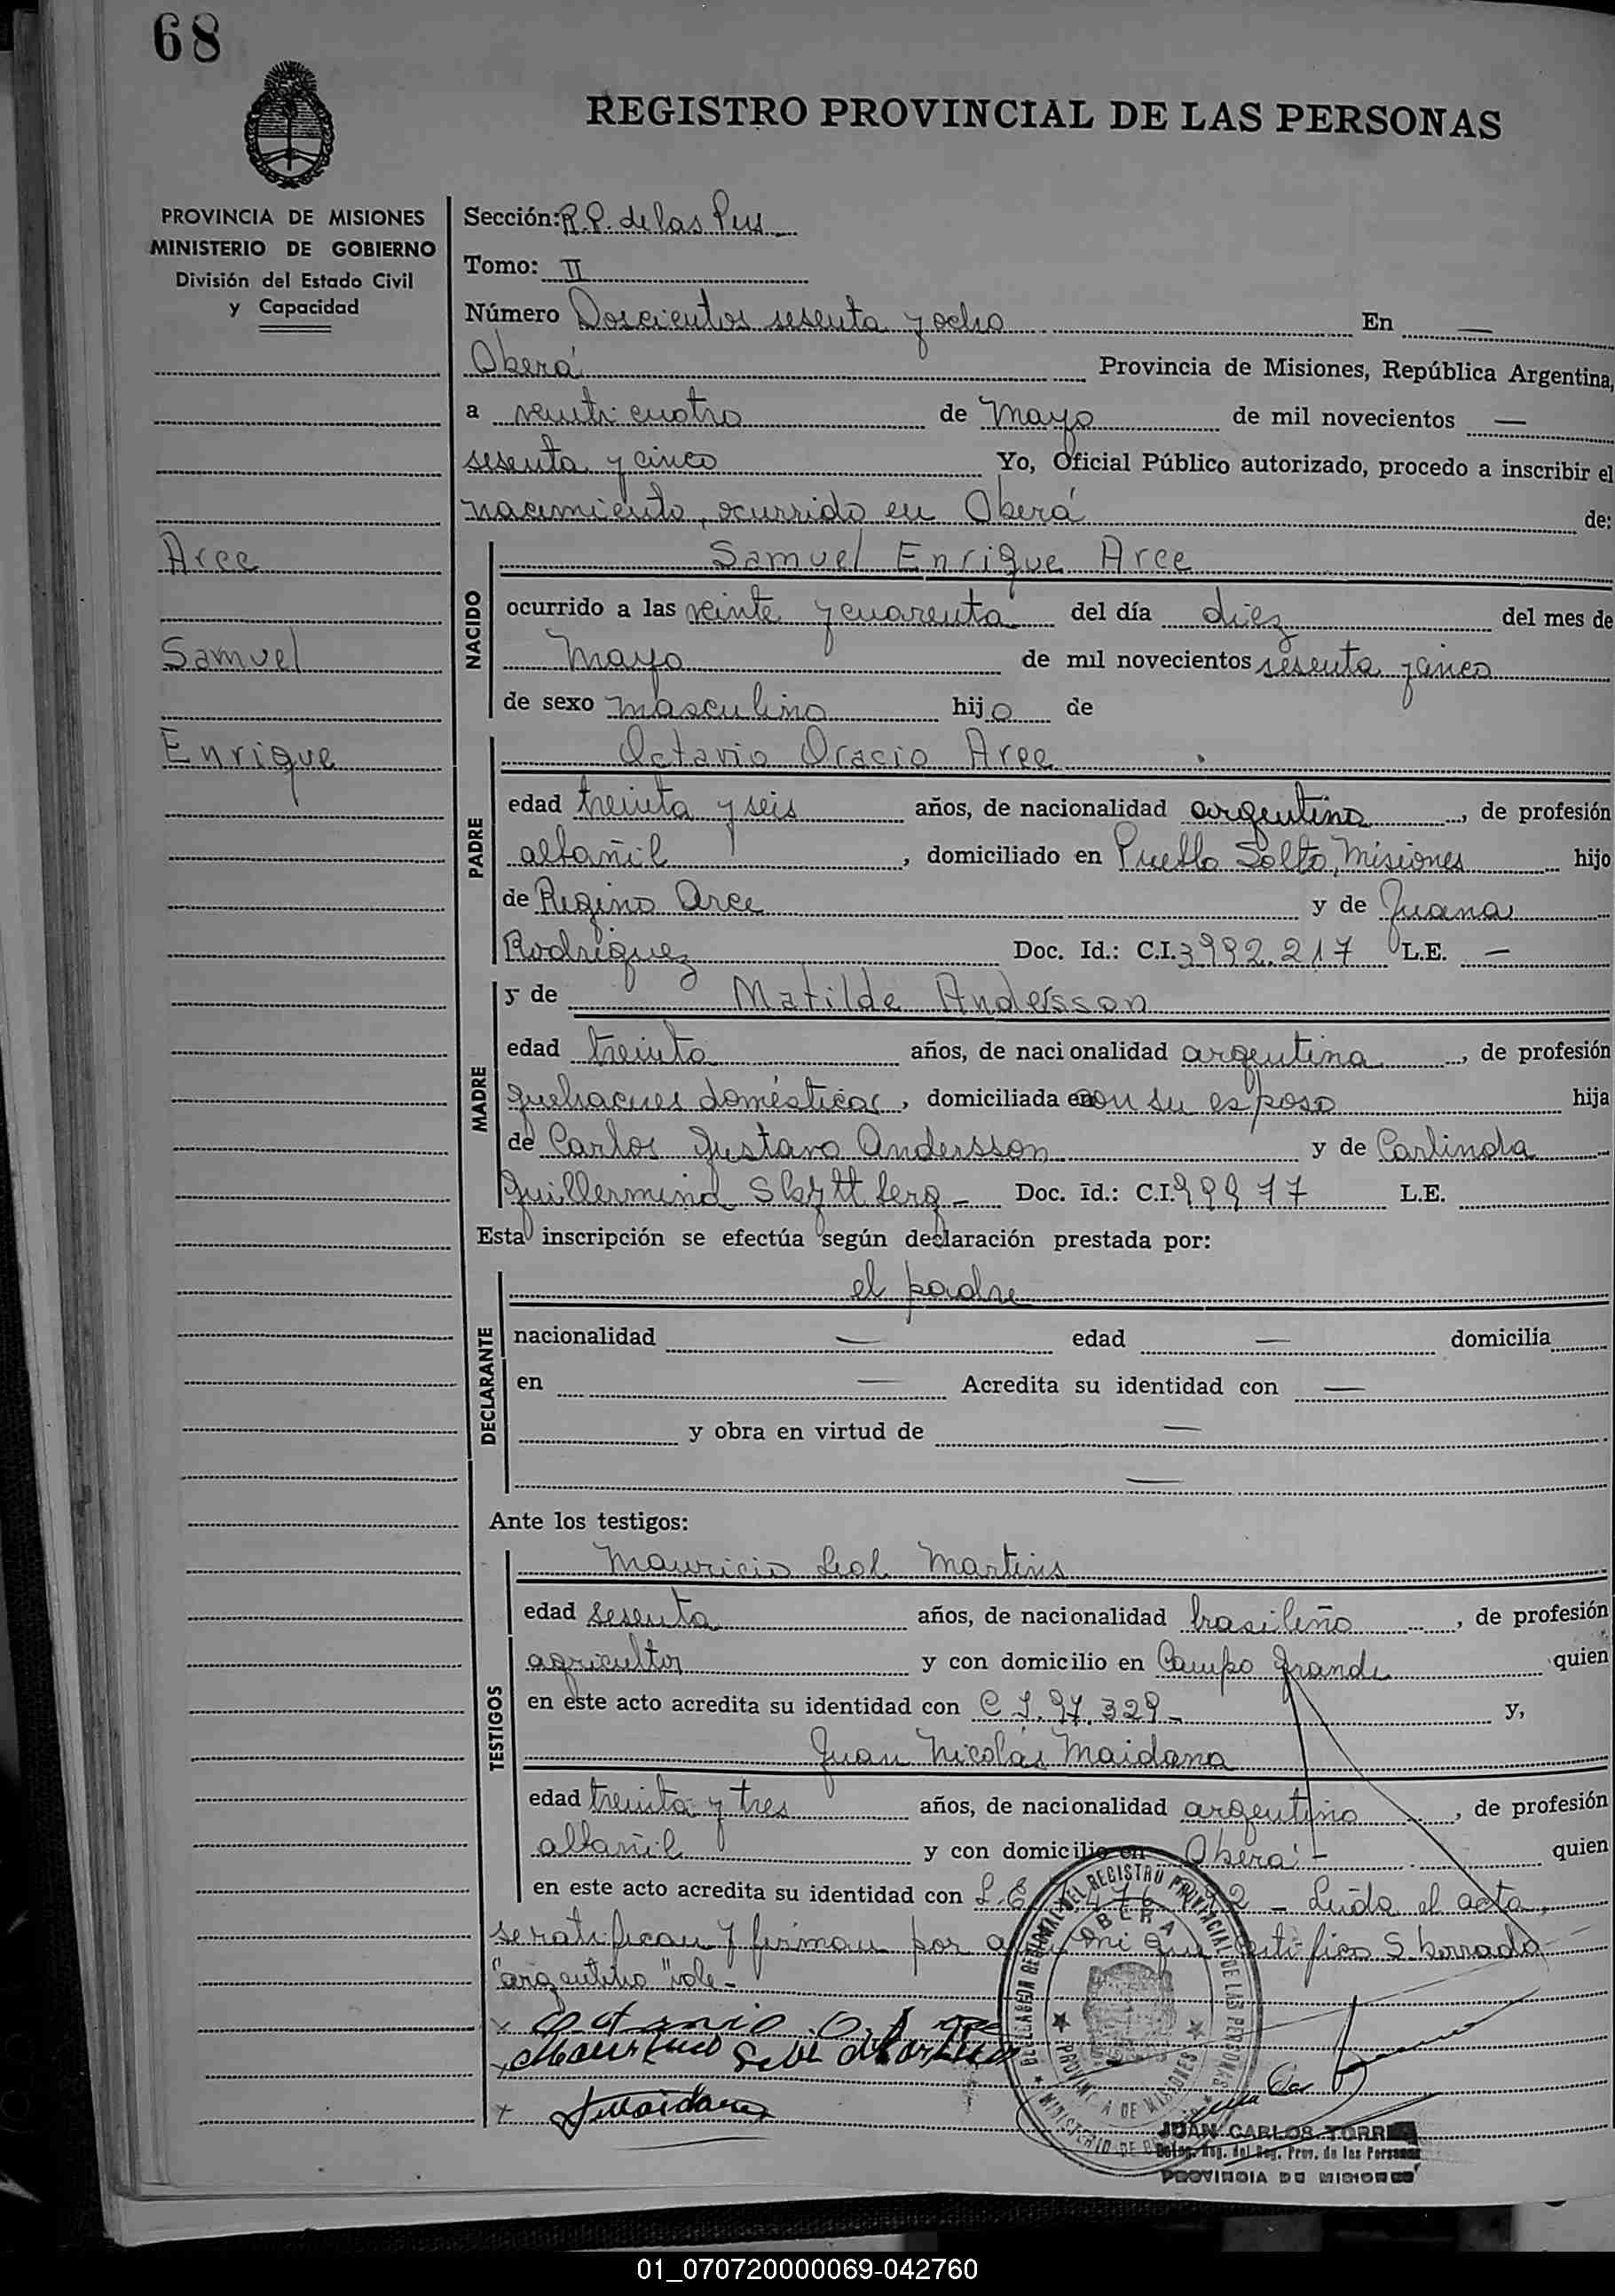 68
REGISTRO PROVINCIAL DE LAS PERSONAS
PROVINCIA DE MISIONES
MINISTERIO DE GOBIERNO
División del Estado Civil
y Capacidad
Sección: R.P. de las Pers
Tomo: II
Número Doscientos sesenta y ocho En —
Oberá Provincia de Misiones, República Argentina,
a veinticuatro de Mayo de mil novecientos —
sesenta y cinco Yo, Oficial Público autorizado, procedo a inscribir el
nacimiento, ocurrido en Oberá de:
Arce
Samuel
Enrique
NACIDO
Samuel Enrique Arce
ocurrido a las veinte y cuarenta del día diez del mes de
Mayo de mil novecientos sesenta y cinco
de sexo masculino hijo de
PADRE
Octavio Oracio Arce
edad treinta y seis años, de nacionalidad argentino, de profesión
albañil, domiciliado en Pueblo Salto, Misiones hijo
de Regino Arce y de Juana
Rodríguez Doc. Id.: C.I. 3992.217 L.E. —
MADRE
y de Matilde Andersson
edad treinta años, de nacionalidad argentina, de profesión
quehaceres domésticos, domiciliada en con su esposo hija
de Carlos Gustavo Andersson y de Carlinda
Guillermina Skyttberg - Doc. Id.: C.I. 99977 L.E.
Esta inscripción se efectúa según declaración prestada por:
DECLARANTE
el padre
nacionalidad — edad — domicilia
en — Acredita su identidad con —
y obra en virtud de —
—
Ante los testigos:
TESTIGOS
Mauricio Martins
edad sesenta años, de nacionalidad brasileño, de profesión
agricultor y con domicilio en Campo Grande quien
en este acto acredita su identidad con C I. 97.329 - y,
Juan Nicolás Maidana
edad treinta y tres años, de nacionalidad argentino, de profesión
albañil y con domicilio en Oberá - quien
en este acto acredita su identidad con L.E. - Leída el acta,
se ratifican y firman por a mi que certifico S borrado
"argentino" vale -
OBERA
PROVINCIA DE MISIONES
JUAN CARLOS TORRES
Deleg. Reg. del Reg. Prov. de las Personas
PROVINCIA DE MISIONES
01_070720000069-042760